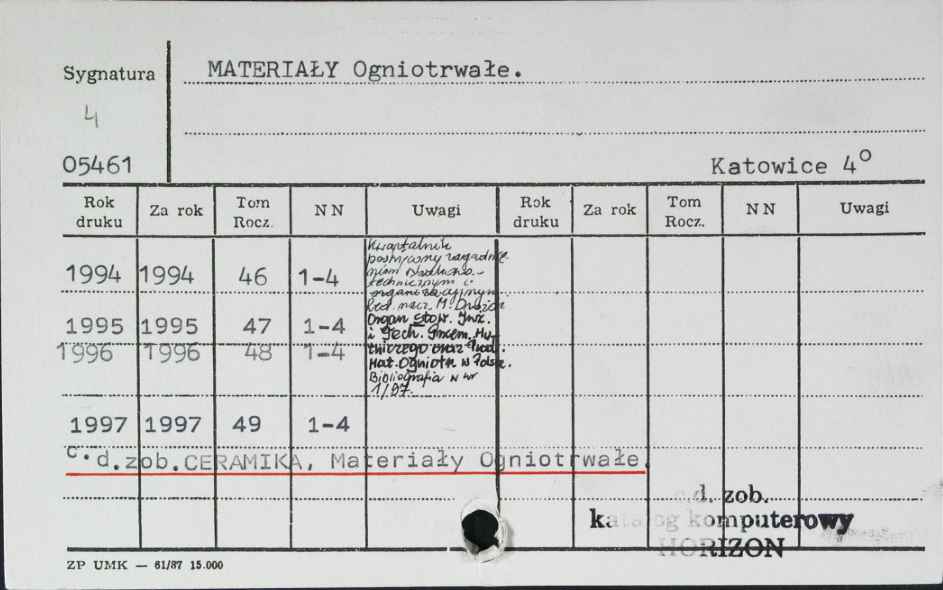 MATERIAŁY Ogniotrwałe.
Sygnatura
4
05461
Katowice 4°
Rok druku Za rok Tom Rocz. N N Uwagi Rok druku Za rok Tom Rocz. N N Uwagi
Kwartalnik
poświęcony zagadnie
niom
technicznym i
organizacyjnym.
Red. nacz. M.
1994 1994 46 1-4
Organ Stow. Inż.
1995 1995 47 1-4
i Tech. Przem. Hu-
tniczego oraz Prod.
1996 1996 48 1-4
Mat. Ogniotr. w Polsce.
Bibliografia w nr
1/97.
1997 1997 49 1-4
c.d.zob.CERAMIKA, Materiały Ogniotrwałe.
c.d. zob.
katalog komputerowy
HORIZON
ZP UMK — 61/87 15.000